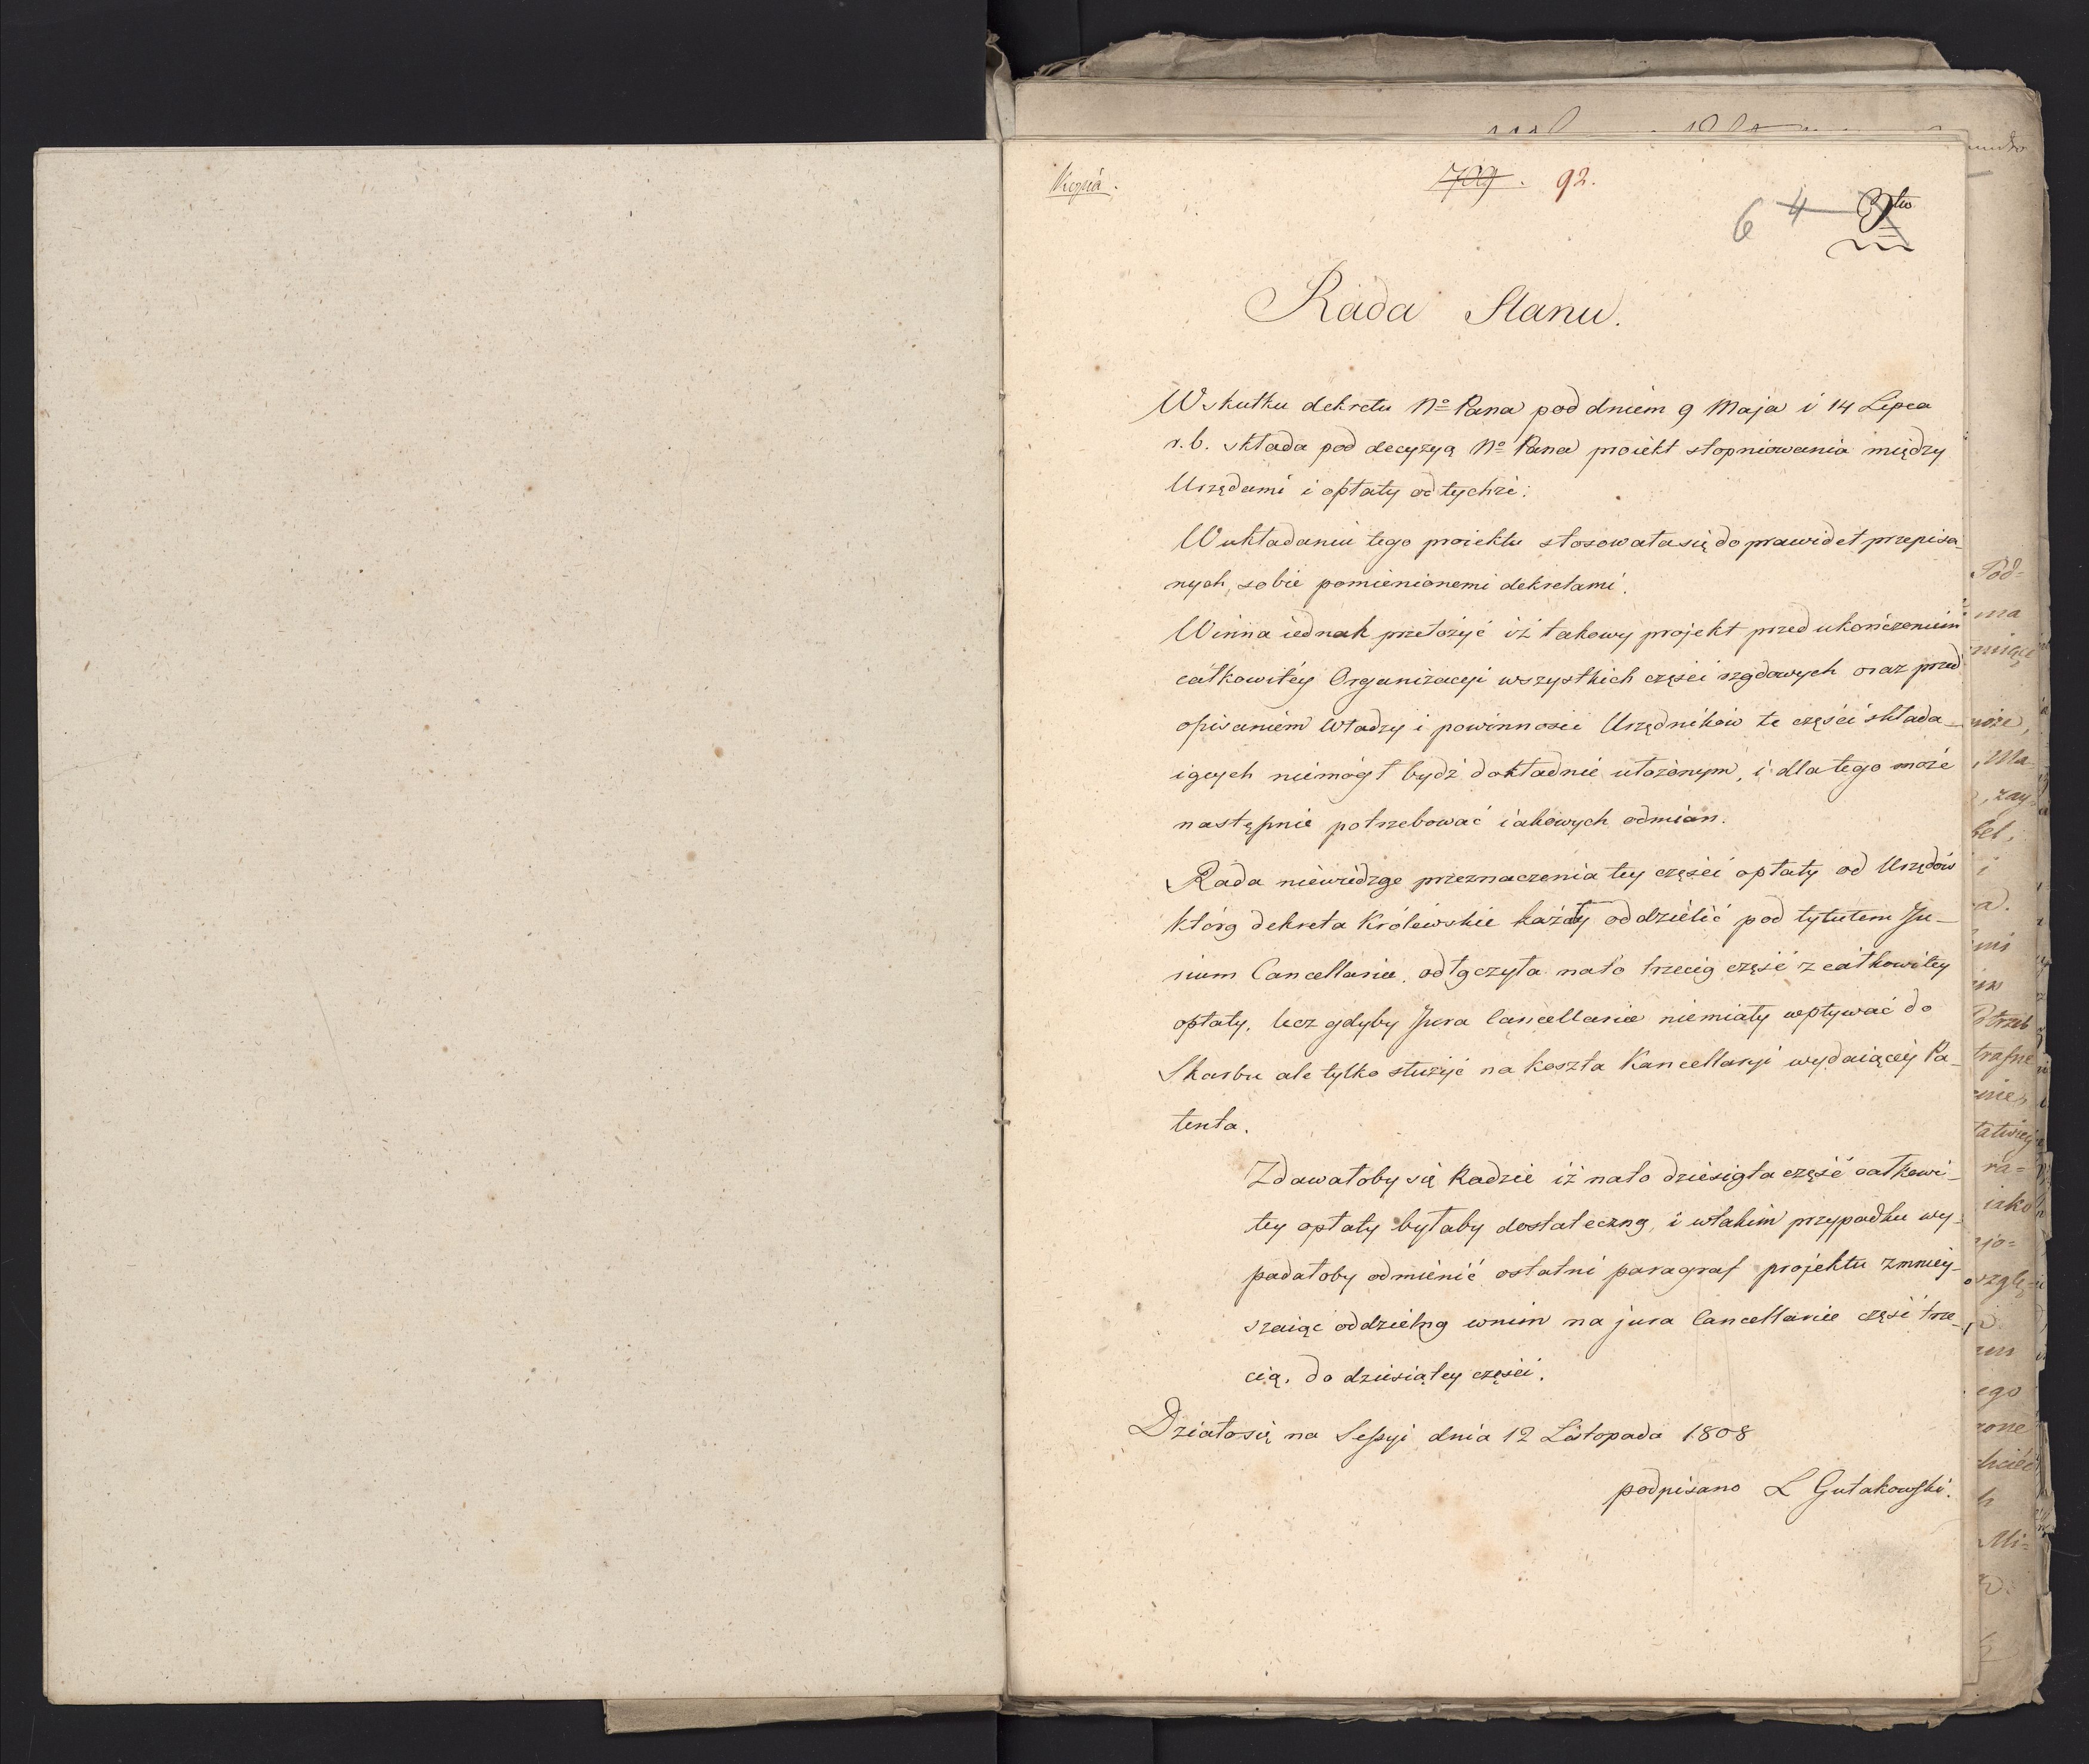 Kopia.
709. 92.
6 4
Rada Stanu.
W skutku dekretu No Pana pod dniem 9 Maja i 14 Lipca
r.b. składa pod decyzyą No Pana proiekt stopniowania między
Urzędami i opłaty od tychże:
W układaniu tego proiektu stosowała się do prawideł przepisa_
nych, sobie pomienionemi dekretami.
Winna iednak przełożyć iż takowy projekt przed ukończeniem
całkowitéy Organizacyi wszystkich części rządowych oraz przed
opisaniem Władzy i powinności Urzędników te części składa_
iących niemógł bydź dokładnie ułożonym, i dla tego może
następnie potrzebować iakowych odmian.
Rada niewidząc przeznaczenia tey części opłaty od Urzędów
którą dekreta Królewskie każą oddzielić pod tytułem Ju_
rium Cancellariæ, odłączyła na to trzecią część z całkowitey
opłaty, lecz gdyby Jura Cancellariæ niemiały wpływać do
Skarbu ale tylko służyć na koszta Kancellaryi wydaiącéy Pa_
tenta.
Zdawałoby się Radzie iż na to dziesiąta część całkowi_
tey opłaty byłaby dostateczną, i w takim przypadku wy_
padałoby odmienić ostatni paragraf projektu zmniey_
szaiąc oddzielną w nim na jura Cancellariæ część trze_
cią, do dziesiątey części.
Działo się na Sessyi dnia 12 Listopada 1808
podpisano L Gutakowski.